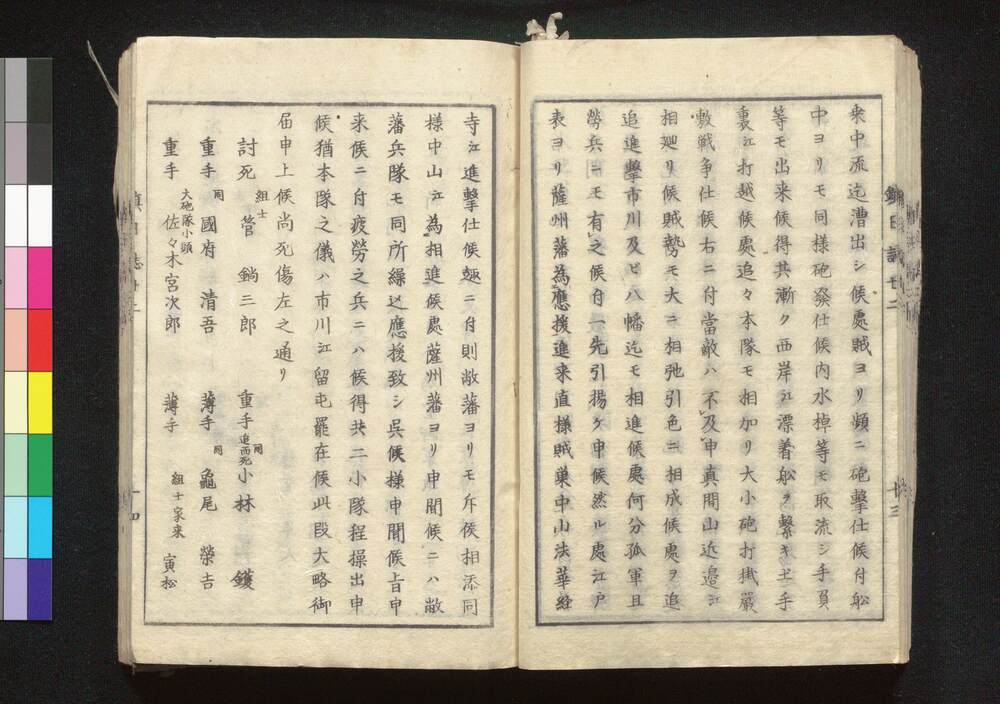 乗中流迄漕出シ候處賊ヨリ頻ニ砲撃仕候付舩
中ヨリモ同様砲發仕候内水棹等モ取流シ手負
等モ出来候得共漸ク西岸江漂着舩ヲ繋キ土手
裏江打越候處追々本隊モ相加リ大小砲打掛嚴
敷戦争仕候右ニ付當敵ハ不及申真間山近邉江
相廻リ候賊勢モ大ニ相弛引色ニ相成候處ヲ追
追進撃市川及ビ八幡迄モ相進候處何分孤軍且
勞兵ニモ有之候付一先引揚ケ申候然ル處江戸
表ヨリ薩州藩為應援進来直様賊巣中山法華経
寺江進撃仕候趣ニ付則敝藩ヨリモ斥候相添同
様中山江為相進候處薩州藩ヨリ申聞候ニハ敝
藩兵隊モ同所繰込應援致シ呉候様申聞候旨申
来候ニ付疲勞之兵ニハ候得共二小隊程操出申
候猶本隊之儀ハ市川江留屯罷在候此段大略御
届申上候尚死傷左之通リ
討死 組士 菅 鎗三郎 重手 追而死 同 小林 鑊
重手 同 國府 清吾 薄手 同 龜尾 榮吉
重手 大砲隊小頭 佐々木宮次郎 薄手 組士家来 寅松